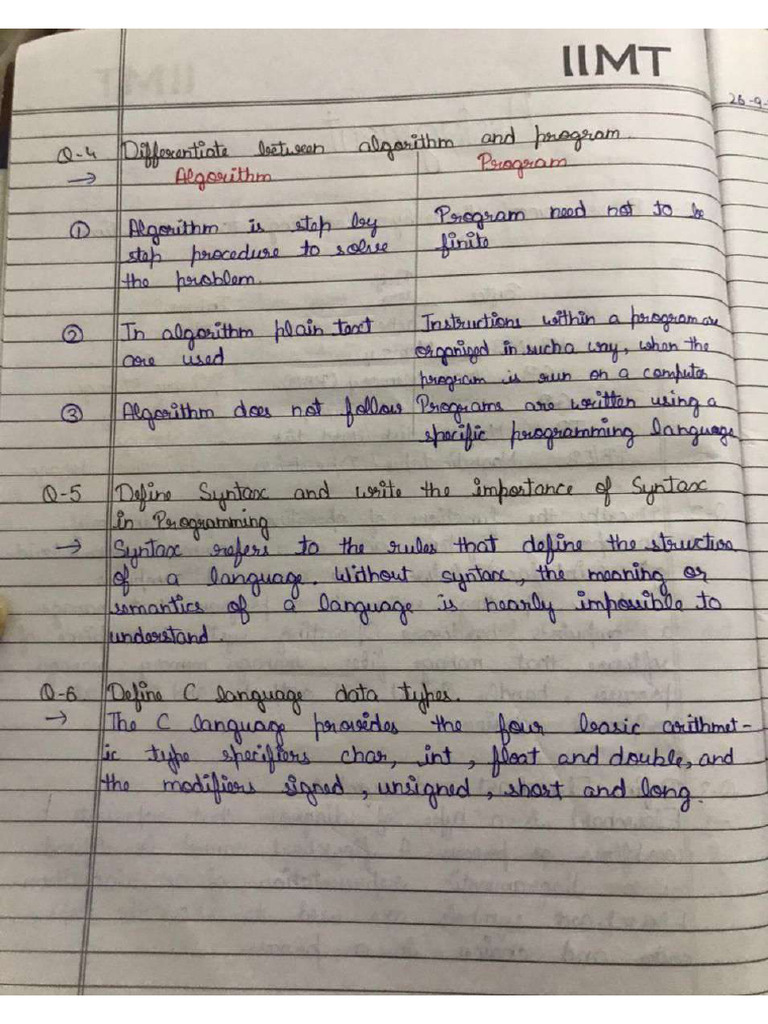 IIMT
26-9-
Q-4 Differentiate between algorithm and program.
→ Algorithm Program
① Algorithm is step by Program need not to be
step procedure to solve finite
the problem.
② In algorithm plain text Instructions within a program are
are used organized in such a way, when the
program is run on a computer
③ Algorithm does not follow Programs are written using a
specific programming language
Q-5 Define Syntax and write the importance of Syntax
in Programming
→ Syntax refers to the rules that define the structure
of a language. Without syntax, the meaning or
semantics of a language is nearly impossible to
understand.
Q-6 Define C language data types.
→ The C language provides the four basic arithmet-
ic type specifiers char, int, float and double, and
the modifiers signed, unsigned, short and long.